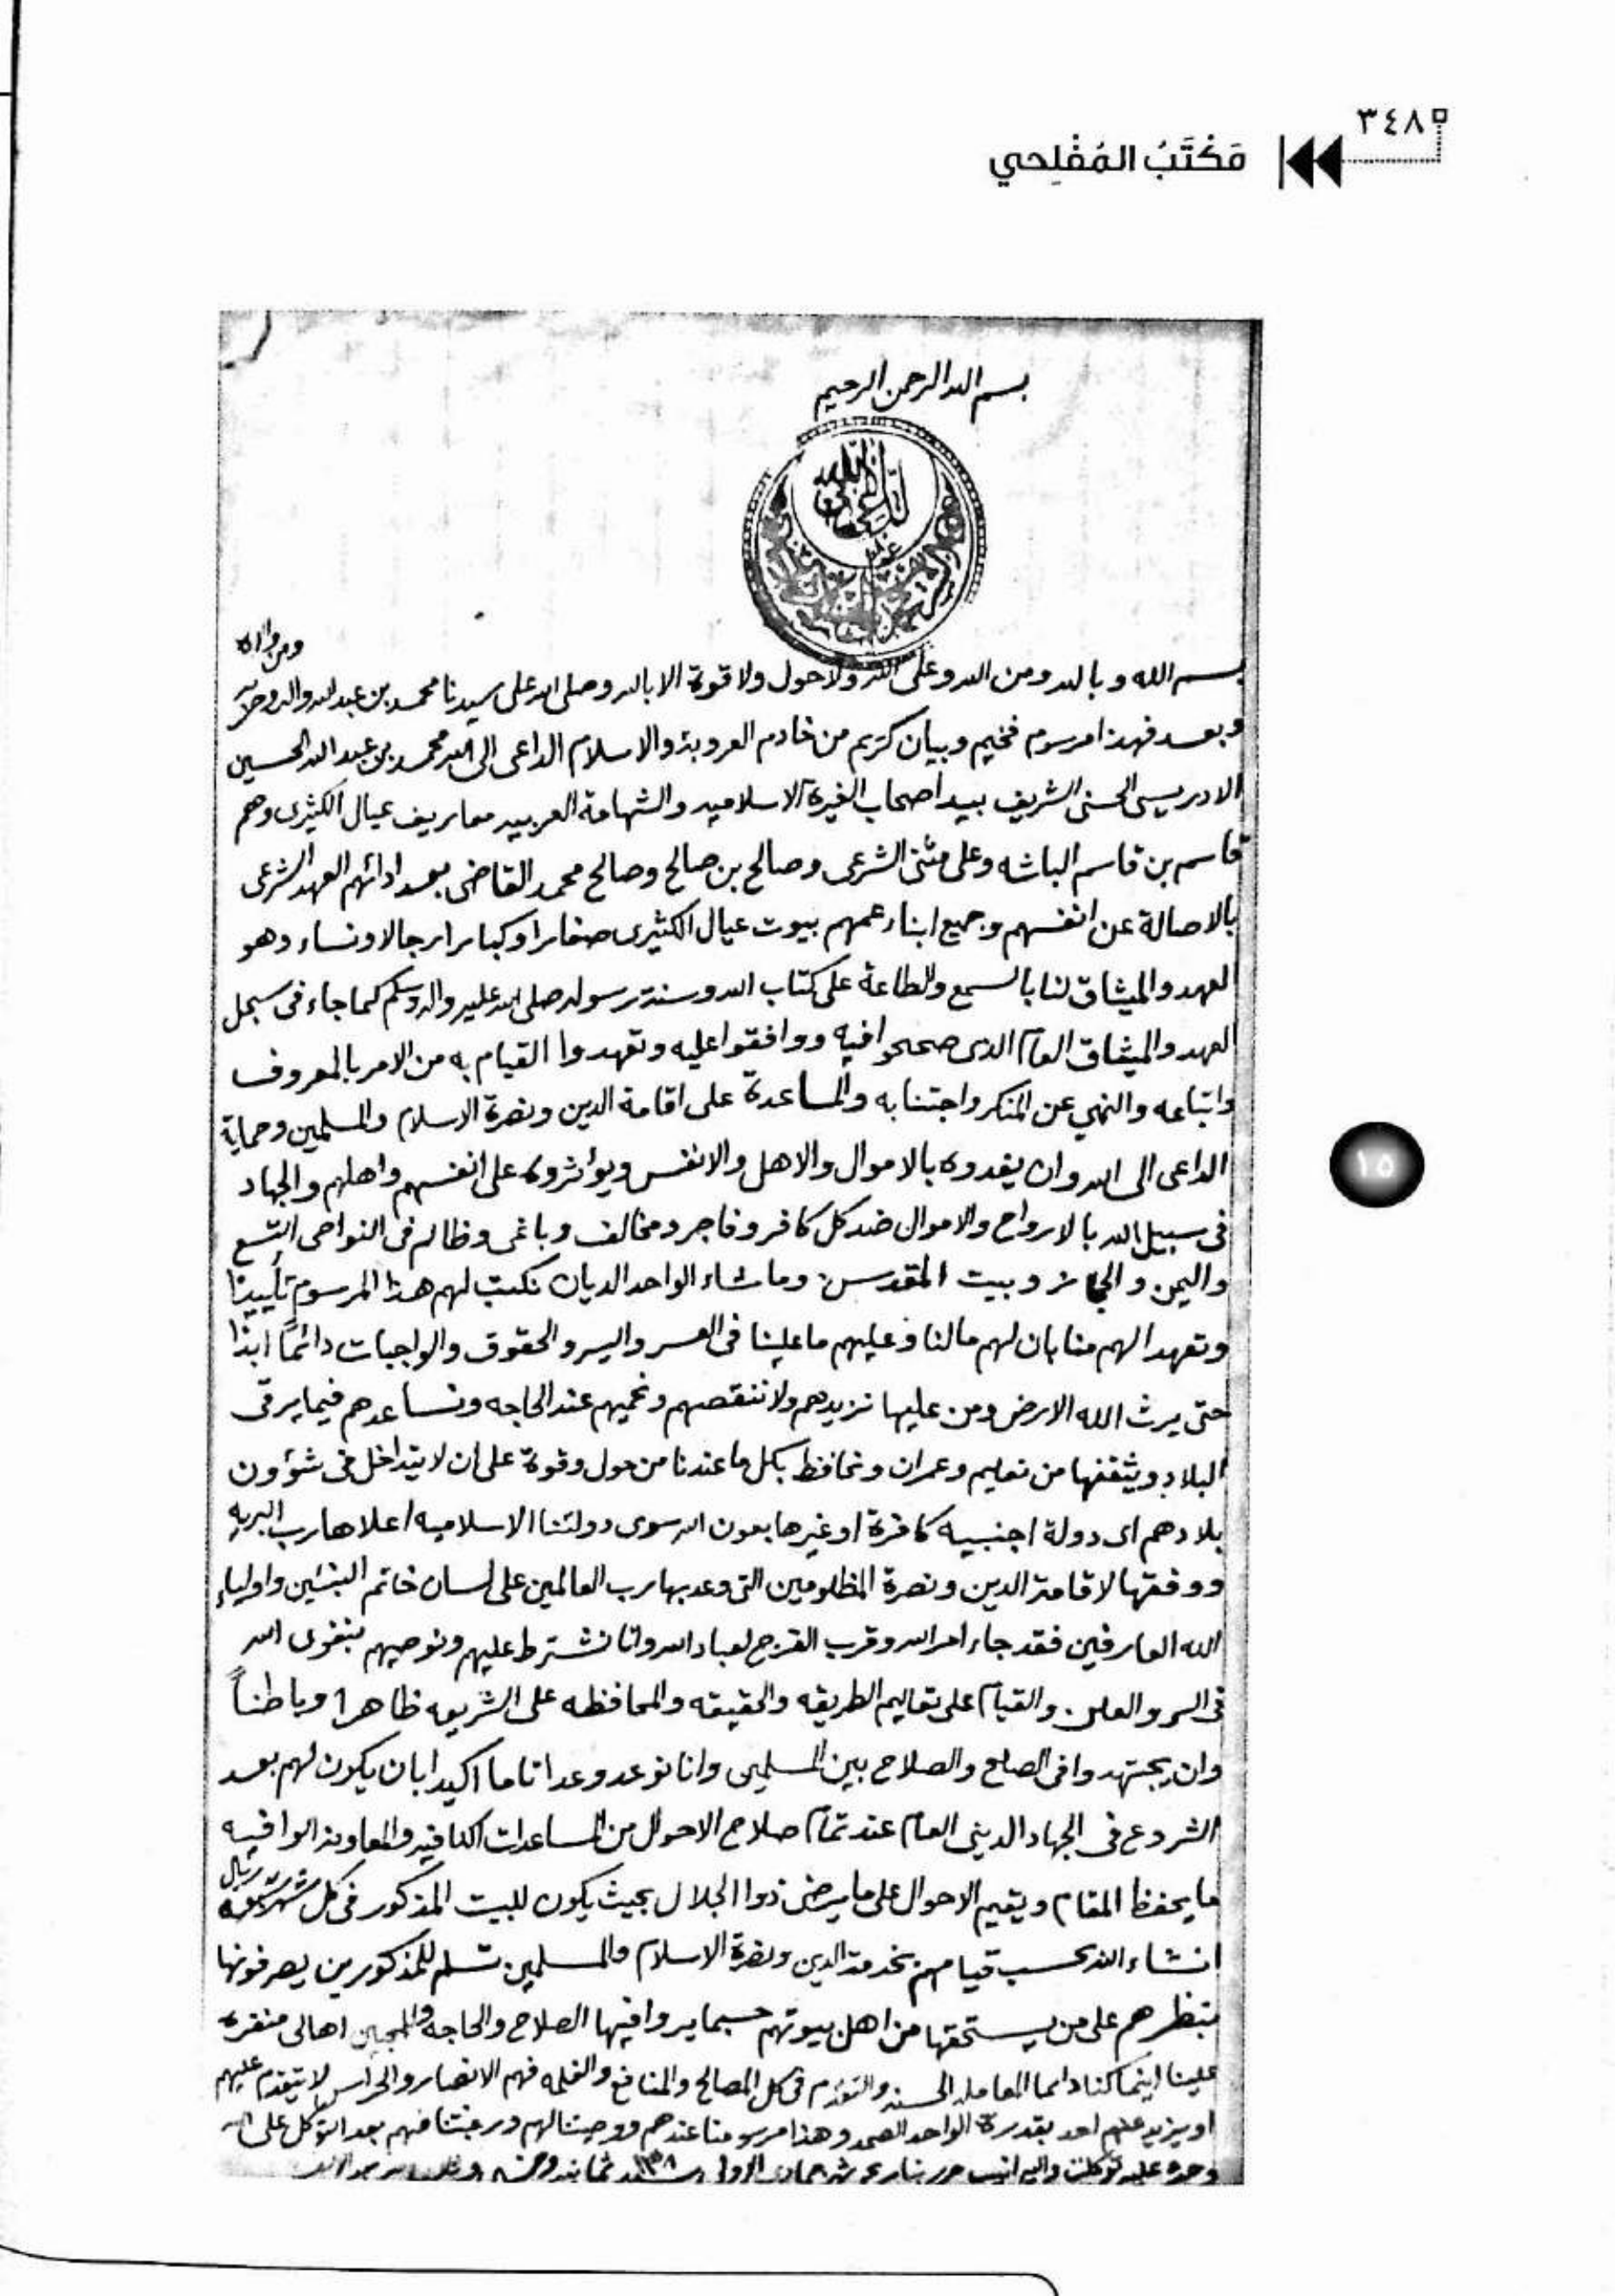 ٣٤٨
مَكْتَبُ المُفْلِحي
بسم الله الرحمن الرحيم
الداعي الى الله
ومن والاه
بسم الله وبالله ومن الله وعلى الله ولا حول ولا قوة الا بالله وصلى الله على سيدنا محمد بن عبد الله واله وحزبه
وبعد فهذا مرسوم فخيم وبيان كريم من خادم العروبة والاسلام الداعى الى الله محمد بن عبد الله الحسين
الادريسى الحسنى الشريف بيد اصحاب الغيرة الاسلاميه والشهامة العربيه معاريف عيال الكثيرى وهم
قاسم بن قاسم الباشه وعلى مثنى الشرعى وصالح بن صالح وصالح محمد القاضى بعد ادائهم العهد الشرعى
بالاصالة عن انفسهم وجميع ابناء عمهم بيوت عيال الكثيرى صغارا وكبارا رجالا ونساء وهو
العهد والميثاق لنا بالسمع والطاعة على كتاب الله وسنة رسوله صلى الله عليه واله وسلم كما جاء فى سجل
العهد والميثاق العام الذى صححوا فيه ووافقوا عليه وتعهدوا القيام به من الامر بالمعروف
واتباعه والنهي عن المنكر واجتنابه والمساعدة على اقامة الدين ونصرة الاسلام والمسلمين وحماية
الداعى الى الله وان يفدوه بالاموال والاهل والانفس ويؤثروه على انفسهم واهلهم والجهاد
فى سبيل الله بالارواح والاموال ضد كل كافر وفاجر ومخالف وباغى وظالم فى النواحى التسع
واليمن والحجاز وبيت المقدس وما شاء الواحد الديان نكتب لهم هذا المرسوم تأييدا
وتعهدا لهم منا بان لهم مالنا وعليهم ما علينا فى العسر واليسر والحقوق والواجبات دائماً ابدا
حتى يرث الله الارض ومن عليها نزيدهم ولا ننقصهم ونحميهم عند الحاجه ونساعدهم فيما يرقى
البلاد ويثقفها من تعليم وعمران ونحافظ بكل ما عندنا من حول وقوة على ان لا يتداخل فى شؤون
بلادهم اى دولة اجنبيه كافرة او غيرها بعون الله سوى دولتنا الاسلاميه اعلاها رب البريه
ووفقها لاقامة الدين ونصرة المظلومين التى وعد بها رب العالمين على لسان خاتم النبئين واولياء
الله العارفين فقد جاء امر الله وقرب الفرج لعباد الله وانا نشترط عليهم ونوصيهم بتقوى الله
فى السر والعلن والقيام على تعاليم الطريقه والحقيقه والمحافظه على الشريعه ظاهرا وباطناً
وان يجتهدوا فى الصلح والصلاح بين المسلمين وانا نوعد وعدا تاما اكيدا بان يكون لهم بعد
الشروع فى الجهاد الدينى العام عند تمام صلاح الاحوال من المساعدات الكافيه والمعاونه الوافيه
ما يحفظ المقام ويقيم الاحوال على ما يرضى ذوا الجلال بحيث يكون للبيت المذكور فى كل شهر ريال
انشاء الله بحسب قيامهم بخدمة الدين ونصرة الاسلام والمسلمين تسلم للمذكورين يصرفونها
بنظرهم على من يستحقها من اهل بيوتهم حسبما يروا فيها الصلاح والحاجه اهالى
علينا اينما كنا دائما المعامله الحسنه والتقدم فى كل المصالح والمنافع والغلمه فهم الانصار والحراس لا يتقدم عليهم
او يزيد عليهم احد بقدرة الواحد الصمد وهذا مرسومنا عندهم ووصيتنا لهم ورغبتنا فيهم بعد التوكل على الله
وحده عليه توكلت واليه انيب حرر بتاريخ شهر جمادى الاولى سنه ١٣٥٨ ثمانيه وخمسه
١٥